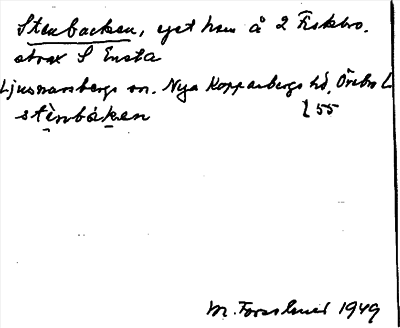 Stenbacken, eget hem å 2 Fiskbo.
strax S Ensta
Ljusnarsbergs sn. Nya Kopparbergs hd, Örebro L
stènbáken l 55
M. Forsslund 1949